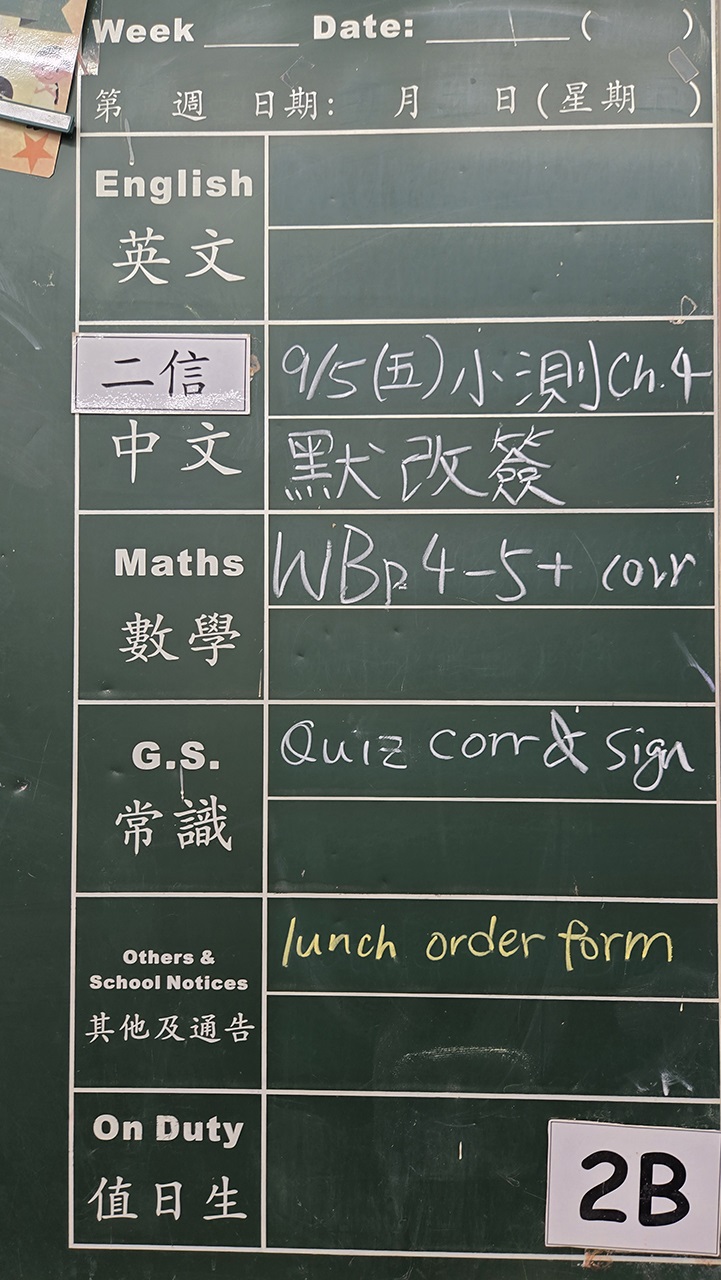 Week ______ Date: __________ (      )
第 週 日期: 月 日(星期 )
English
英文
二信
9/5(五)小測Ch.4
中文
默改簽
Maths
WBp.4-5+ corr
數學
G.S.
Quiz corr & sign
常識
Others &
School Notices
lunch order form
其他及通告
On Duty
值日生
2B